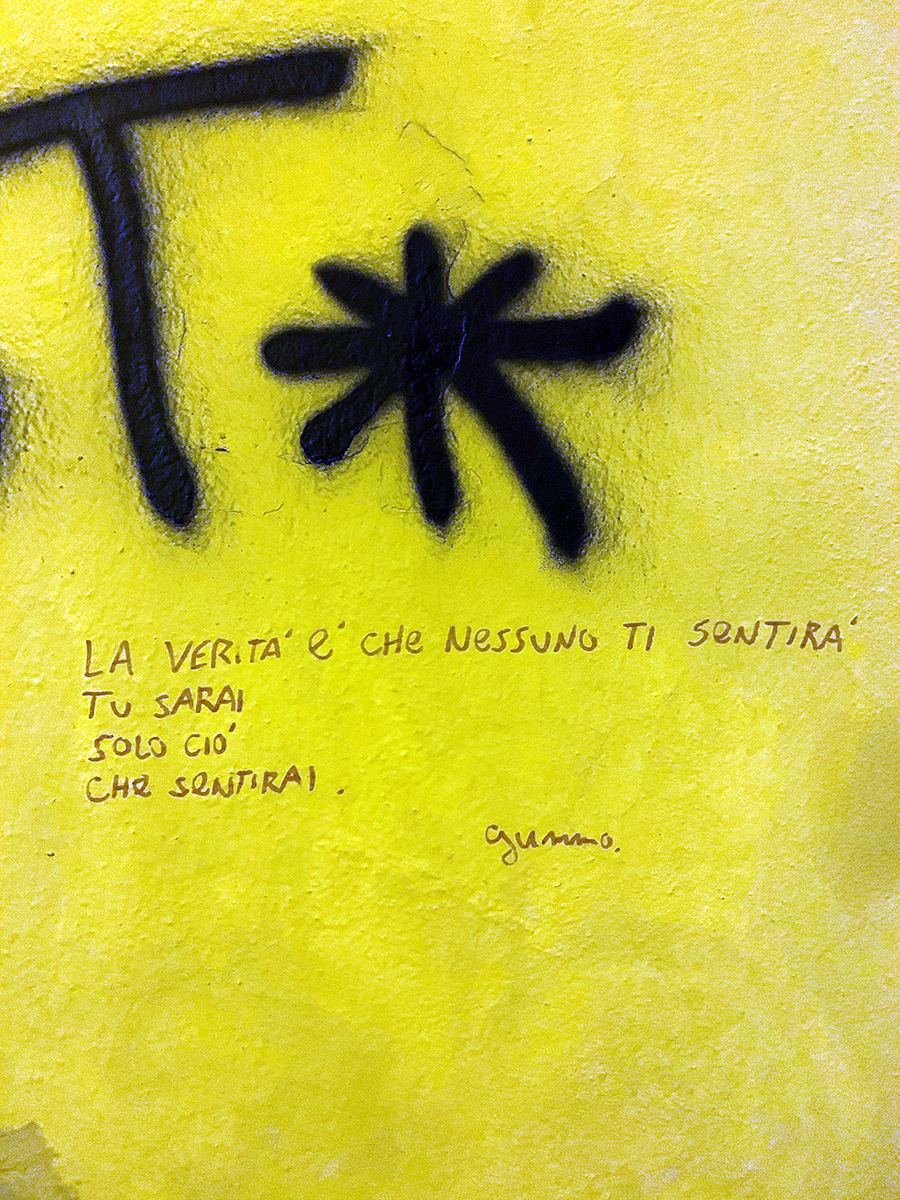 T *
LA VERITA' e' CHe NeSSUNO TI SeNTIRA'
TU SARAI
SOLO CIO'
CHe SeNTIRAI.
gummo.